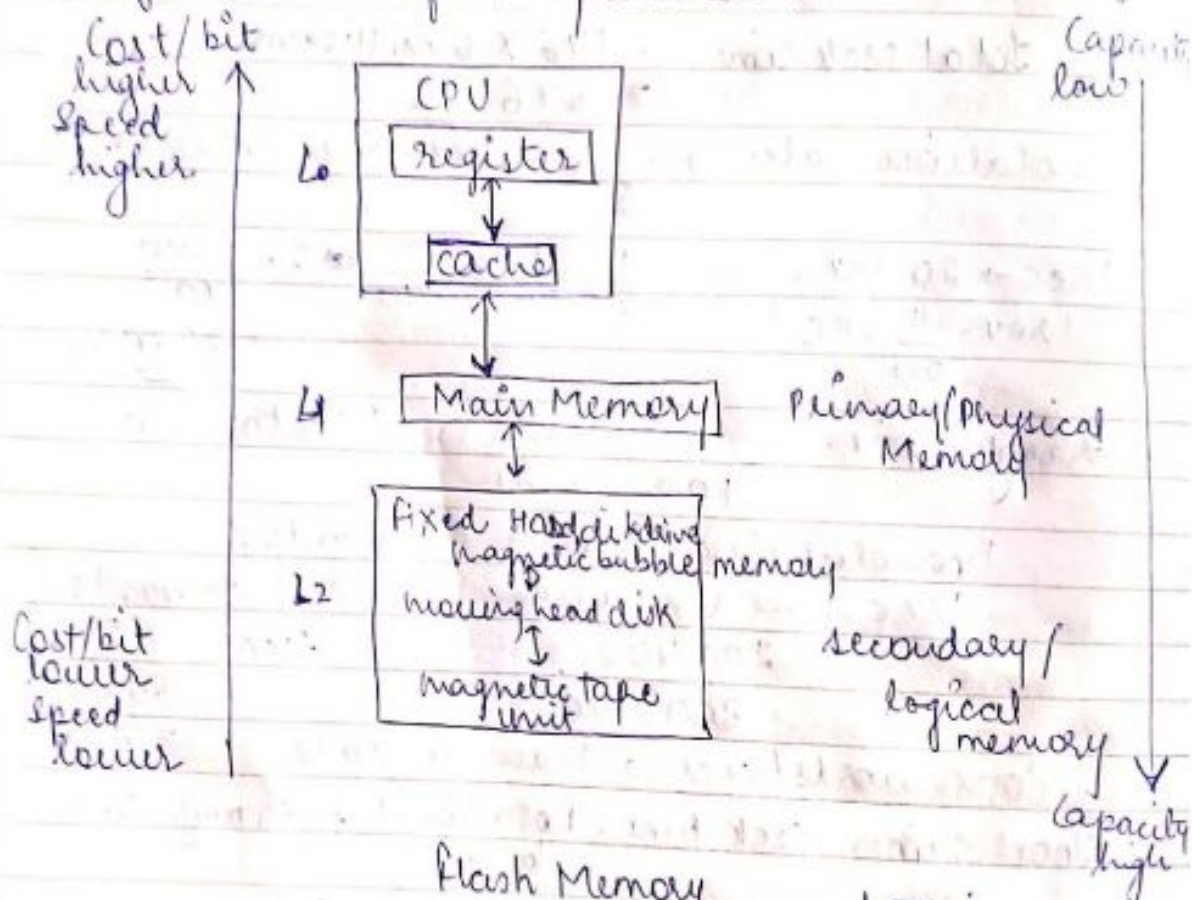 Cost/bit
higher
Speed
higher
Capacity
low
CPU
register
L0
cache
L1
Main Memory
Primary/Physical
Memory
fixed Hard diskdrive
magnetic bubble memory
L2
moving head disk
magnetic tape
unit
secondary/
logical
memory
Cost/bit
lower
Speed
lower
Capacity
high
Flash Memory